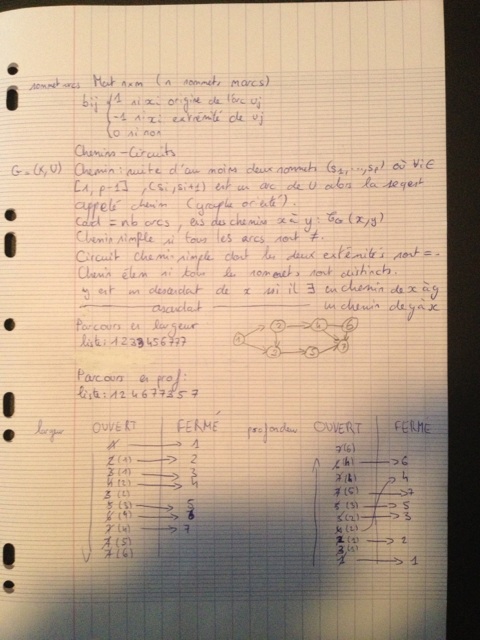 sommet arcs Mat nxm (n sommets m arcs)
bij { 1 si xi origine de l'arc uj
-1 si xi extrémité de uj
0 si non
Chemins-Circuits
G=(X,U) Chemin: suite d'au moins deux sommets (s1,...,sp) où ∀i∈
[1, p-1], (si,si+1) est un arc de U alors la seq est
appelé chemin (graphe orienté).
Card = nb arcs, les chemins x à y: (x,y)
Chemin simple si tous les arcs sont ≠.
Circuit chemin simple dont les deux extrémités sont =.
Chemin élem si tous les sommets sont distincts.
y est un descendant de x ssi il ∃ un chemin de x à y
ascendant un chemin de y à x
Parcours en largeur
liste: 1 2 3 3 4 5 6 7 7 7
Parcours en prof:
liste: 1 2 4 6 7 7 3 5 7
largeur OUVERT FERMÉ profondeur OUVERT FERMÉ
1 → 1 7(6)
2(1) → 2 6(4) → 6
3(1) → 3 7(4) 4
4(2) → 4 7(5) → 7
3(2) 5(3) → 5
5(3) → 5 3(2) → 3
6(4) → 6 4(2)
7(4) → 7 2(1) → 2
7(5) 3(1)
7(6) 1 → 1